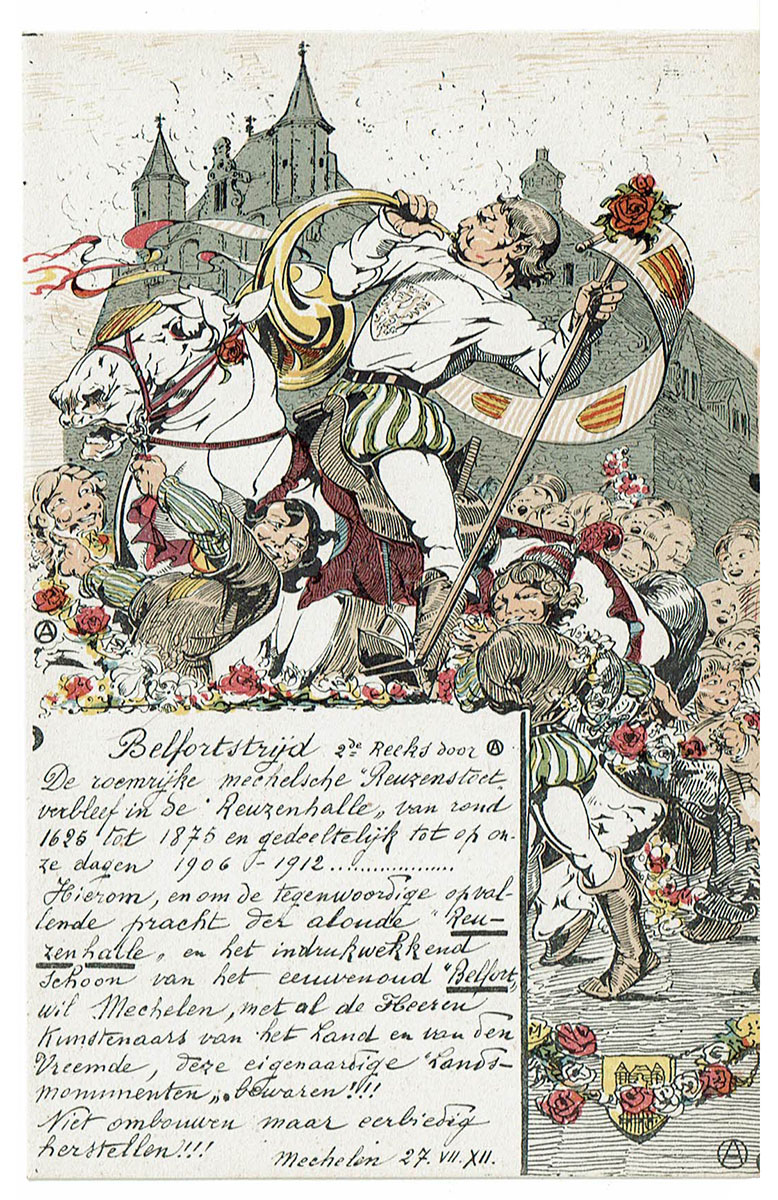 Belfortstrijd 2de Reeks door A
De roemrijke mechelsche "Reuzenstoet"
verbleef in de "Reuzenhalle„ van rond
1625 tot 1875 en gedeeltelijk tot op on-
ze dagen 1906 – 1912 ..................
Hierom, en om de tegenwoordige opval-
lende pracht der aloude "Reu-
zenhalle„ en het indrukwekkend
schoon van het eeuwenoud "Belfort„
wil Mechelen, met al de Heeren
Kunstenaars van het Land en van den
Vreemde, deze eigenaardige "Lands-
monumenten„ bewaren!!!!
Niet ombouwen maar eerbiedig
herstellen!!!!
Mechelen 27. VII. XII.
A
A